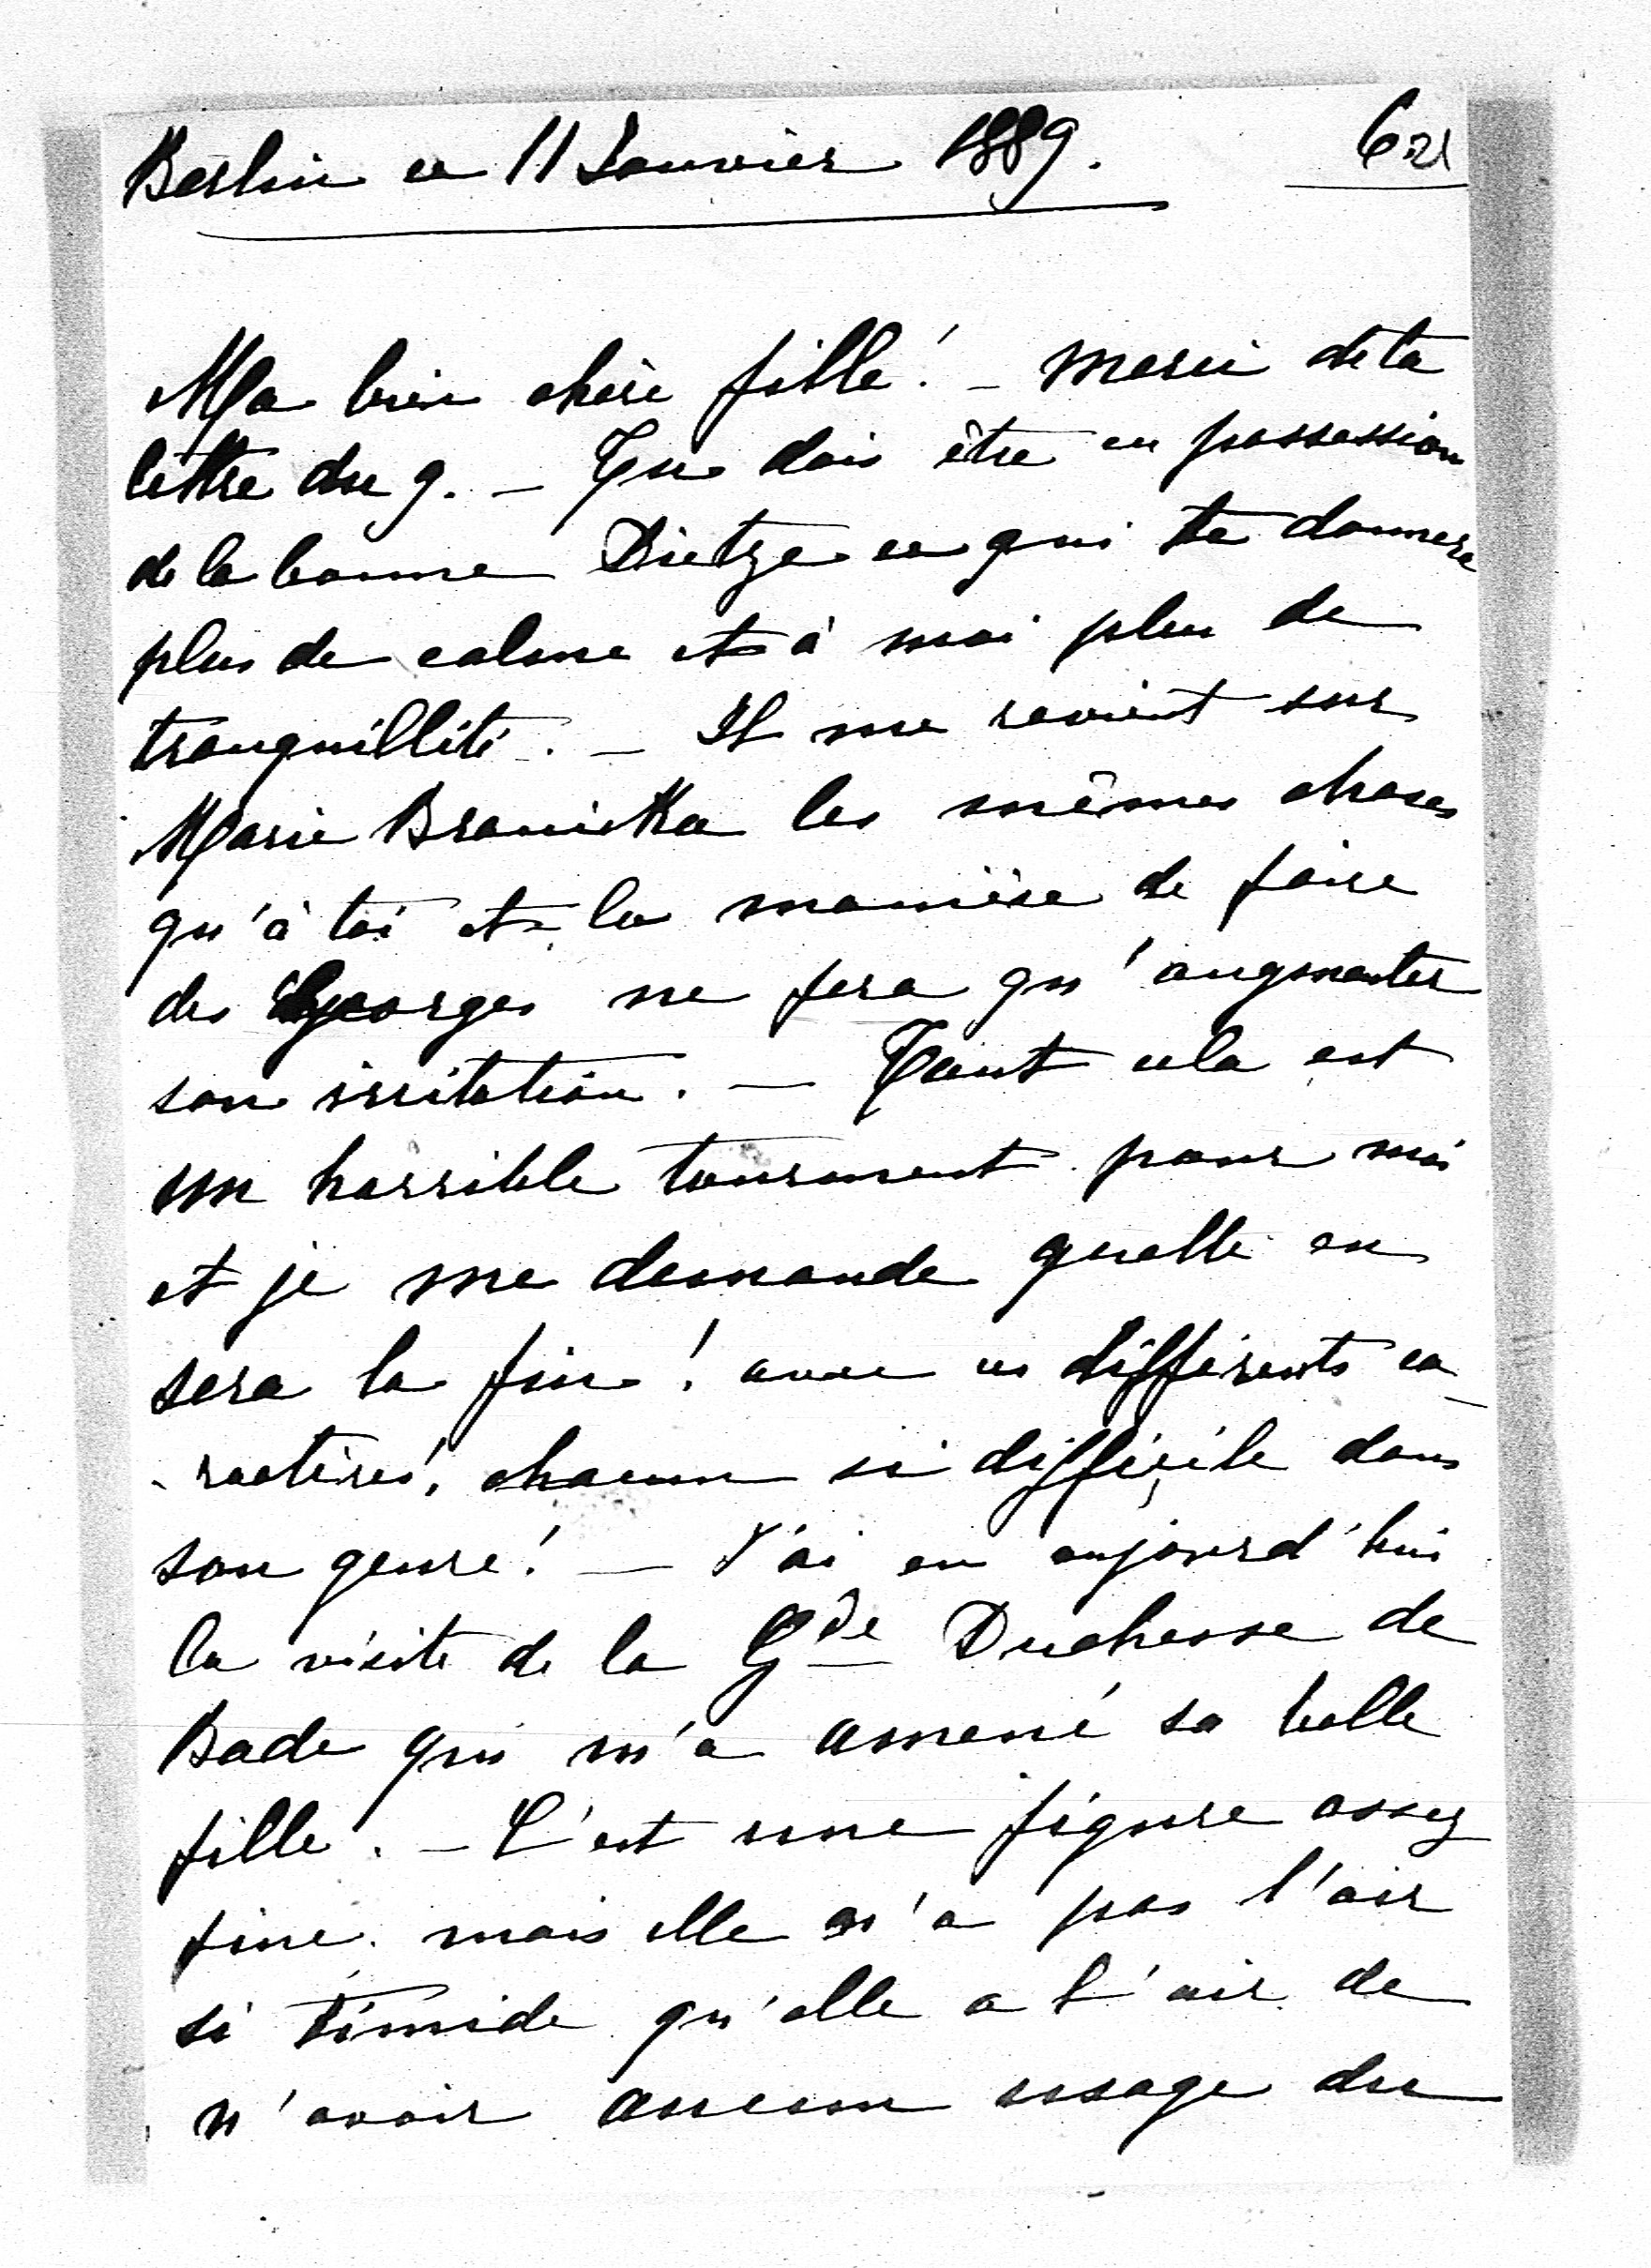 Berlin ce 11 Janvier 1889. 621
Ma bien chère fille! – merci de ta
lettre du 9. – Tu dois être en possession
de la bonne Dietze ce qui te donnera
plus de calme et à moi plus de
tranquillité. – Il me revient sur
Marie Branicka les mêmes choses
qu'à toi et la manière de faire
des Georges ne fera qu'augmenter
son irritation. – Tout cela est
un horrible tourment pour moi
et je me demande quelle en
sera la fin! avec ces différents ca-
-ractères, chacun si difficile dans
son genre! – J'ai eu aujourd'hui
la visite de la Gde Duchesse de
Bade qui m'a amené sa belle
fille. – C'est une figure assez
fine. mais elle n'a pas l'air
si timide qu'elle a l'air de
n'avoir aucun usage du